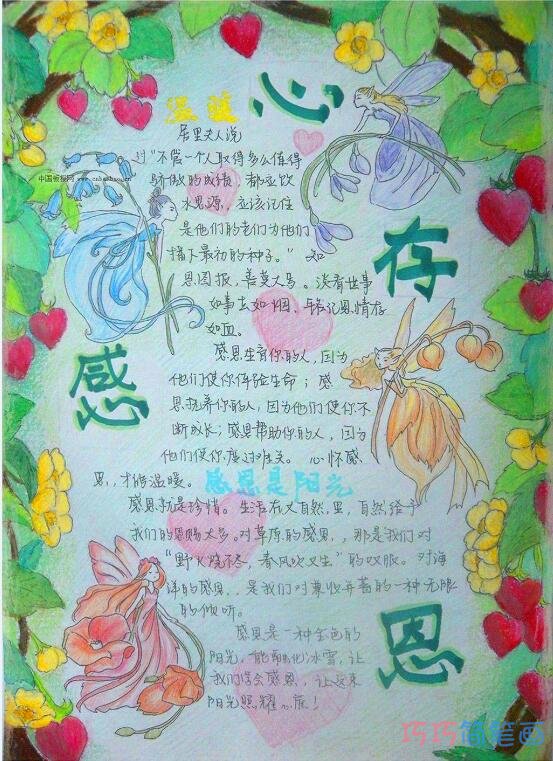 心
存
感
恩
温暖
居里夫人说
过"不管一个人取得多么值得
骄傲的成绩，都应饮
水思源，应该记住
是他们的老们为他们
播下最初的种子。" 知
恩图报，善莫大焉。淡看世事
如事去如烟，铭记恩情存
如血。
感恩生育你的人，因为
他们使你体验生命；感
恩抚养你的人，因为他们使你不
断成长；感恩帮助你的人，因为
他们使你度过难关。心怀感
恩，才能温暖。
感恩是阳光
感恩就是珍惜。生活在大自然，里，自然给予
我们的恩赐太多。对草原的感恩，，那是我们对
"野火烧不尽，春风吹又生"的叹服。对海
洋的感恩，，是我们对兼收并蓄的一种无限
的倾听。
感恩是一种金色的
阳光，能融化冰雪，让
我们学会感恩，让这束
阳光照耀心底！
中国板报网 www.cnbanbao.cn
巧巧简笔画